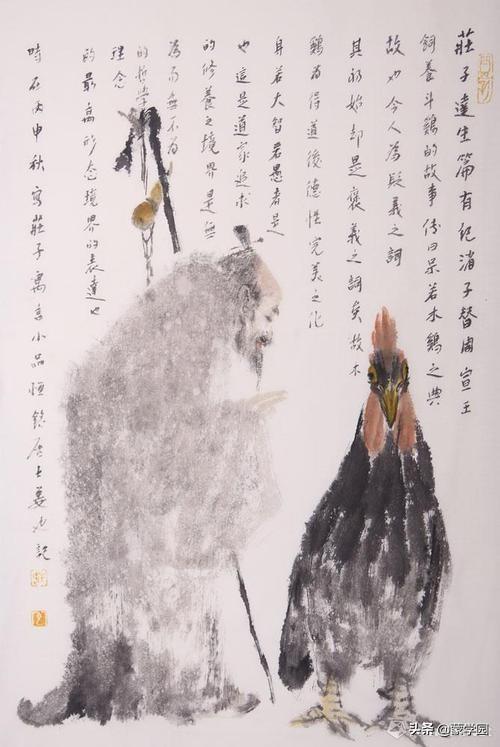 莊子達生篇有紀渻子替周宣王
飼養斗鷄的故事传曰呆若木鷄之典
故也今人為貶義之詞
其初始却是褒義之詞矣故木
鷄為得道後德性完美之化
身若大智若愚者是
也這是道家追求
的修養之境界是無
為而無不為
的哲學
理念
的最高形态境界的表達也
時在丙申秋寫莊子寓言小品恒銘居士姜記
头条 @蒙学园